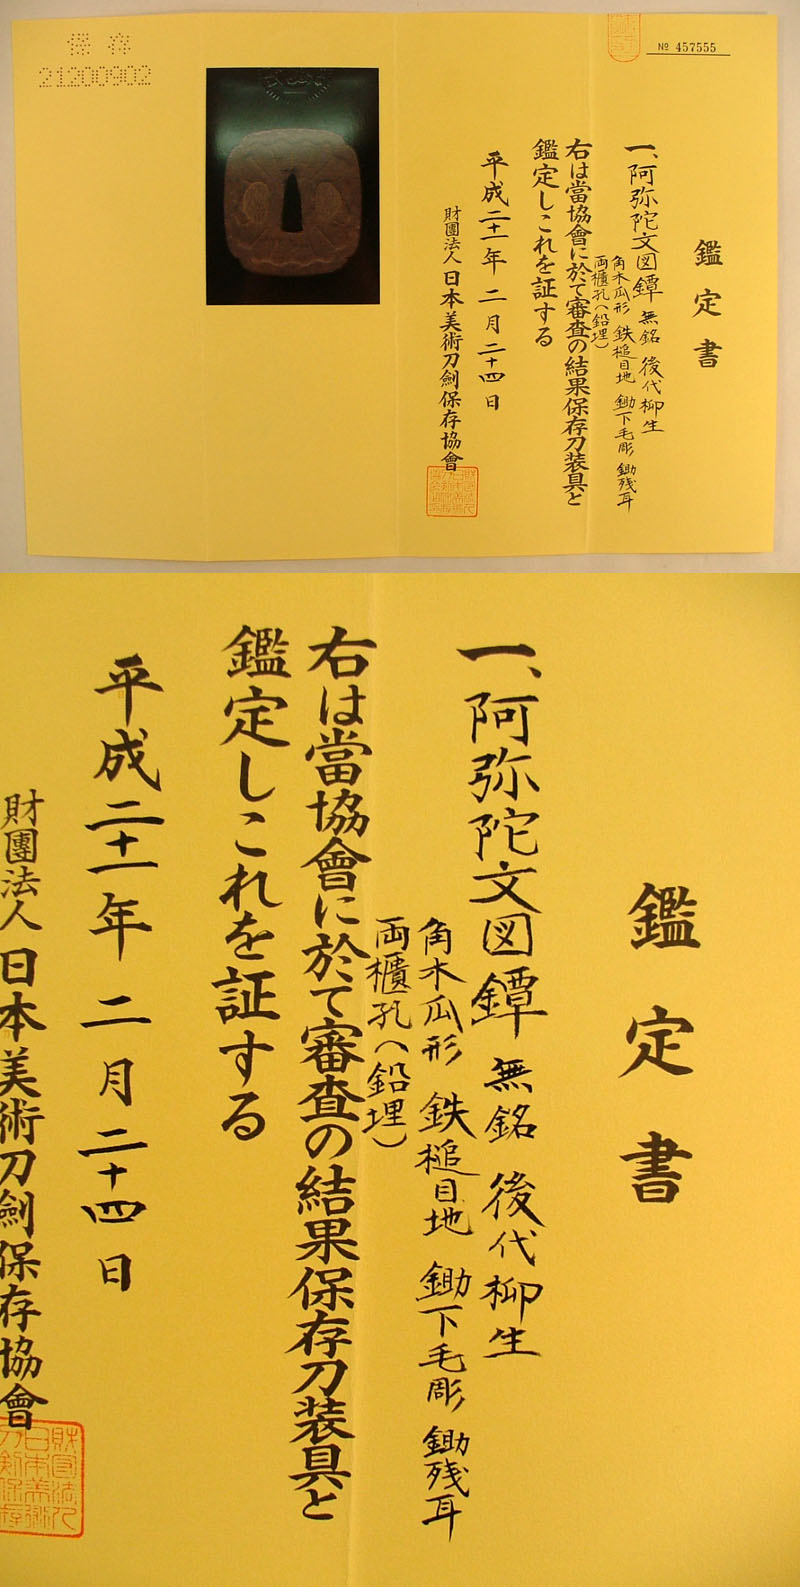 保存
21200902
№ 457555
鑑定書
一、阿弥陀文図鐔 無銘 後代柳生
角木瓜形 鉄槌目地 鋤下毛彫 鋤残耳
両櫃孔(鉛埋)
右は當協會に於て審査の結果保存刀装具と
鑑定しこれを証する
平成二十一年 二月二十四日
財團法人 日本美術刀劍保存協會
鑑定書
一、阿弥陀文図鐔 無銘 後代柳生
角木瓜形 鉄槌目地 鋤下毛彫 鋤残耳
両櫃孔(鉛埋)
右は當協會に於て審査の結果保存刀装具と
鑑定しこれを証する
平成二十一年 二月二十四日
財團法人 日本美術刀劍保存協會